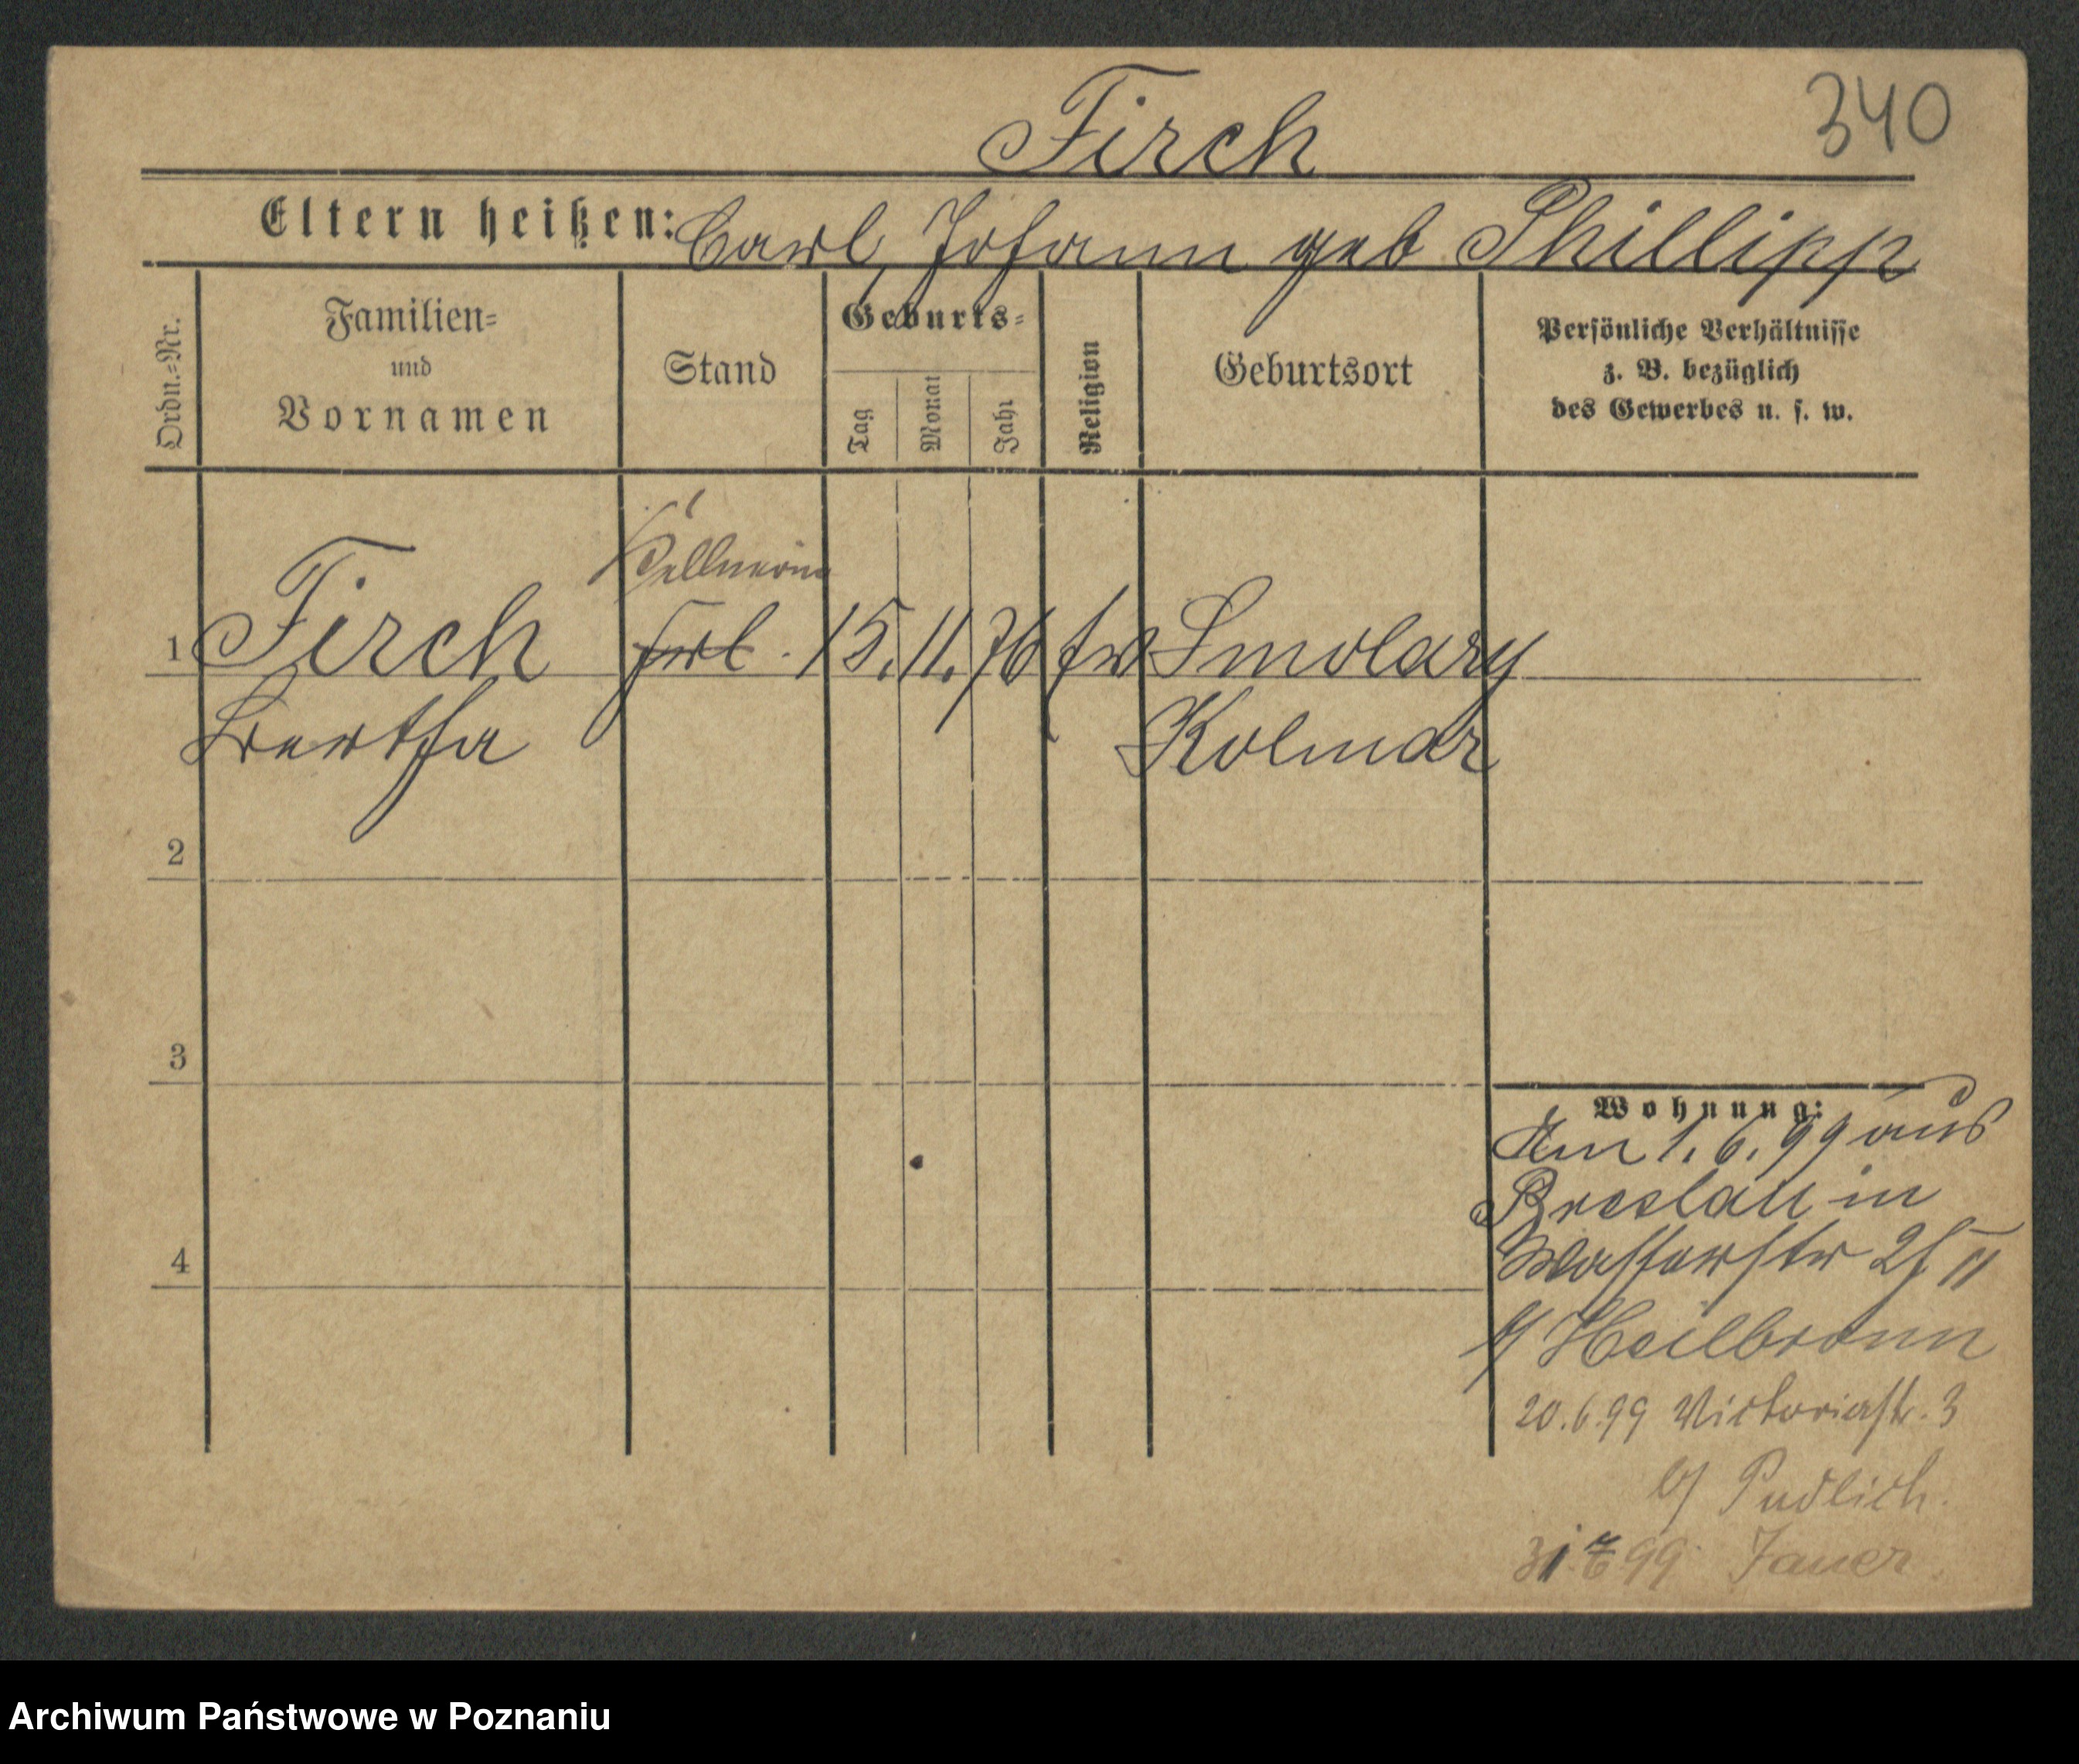 340
Firch
Eltern heißen: Carl, Johann geb Phillipp
Ordn.-Nr.
Familien-
und
Vornamen
Stand
Geburts-
Tag
Monat
Jahr
Religion
Geburtsort
Persönliche Verhältnisse
z. B. bezüglich
des Gewerbes u. s. w.
Kellnerin
1 Firch Frl. 15. 11. 76 Smolary
Bertha Kolmar
2
3
4
Wohnung:
Am 1. 6. 99 aus
Breslau in
Wasserstr II
b/ Heilbronn
20. 6 99 Victoriastr. 3
b/ Pudlich.
31. 99 Jauer
Archiwum Państwowe w Poznaniu